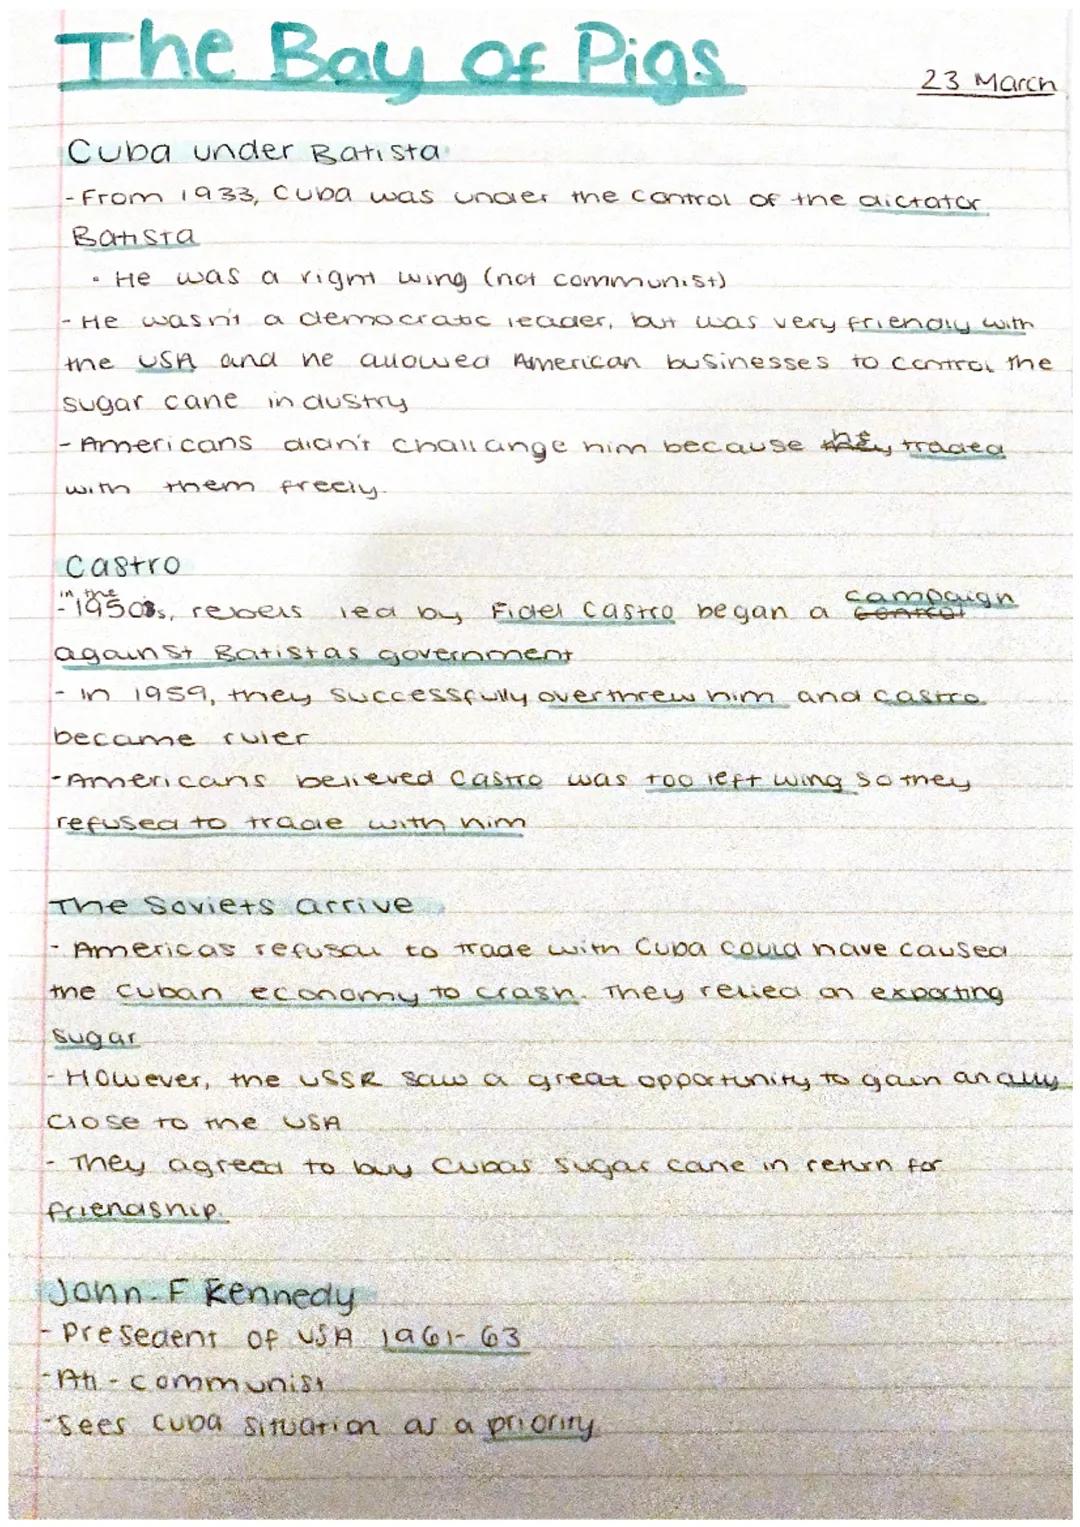 The Bay of Pigs
23 March
Cuba under Batista
-From 1933, Cuba was under the control of the dictator
Batista
• He was a right wing (not communist)
-He wasn't a democratic leader, but was very friendly with
the USA and he allowed American businesses to control the
sugar cane industry
-Americans didn't challange him because he traded
with them freely.
Castro
- in the 1950s, rebels led by Fidel Castro began a campaign
against Batistas government
- In 1959, they successfully overthrew him and castro
became ruler
-Americans believed Castro was too left wing so they
refused to trade with him
The Soviets arrive
- Americas refusal to trade with Cuba could have caused
the Cuban economy to crash. They relied on exporting
sugar
-However, the USSR saw a great opportunity to gain an ally
close to the USA
- They agreed to buy Cubas sugar cane in return for
friendship.
John.F Kennedy
- Presedent of USA 1961-63
-Ati-communist
-Sees Cuba situation as a priority